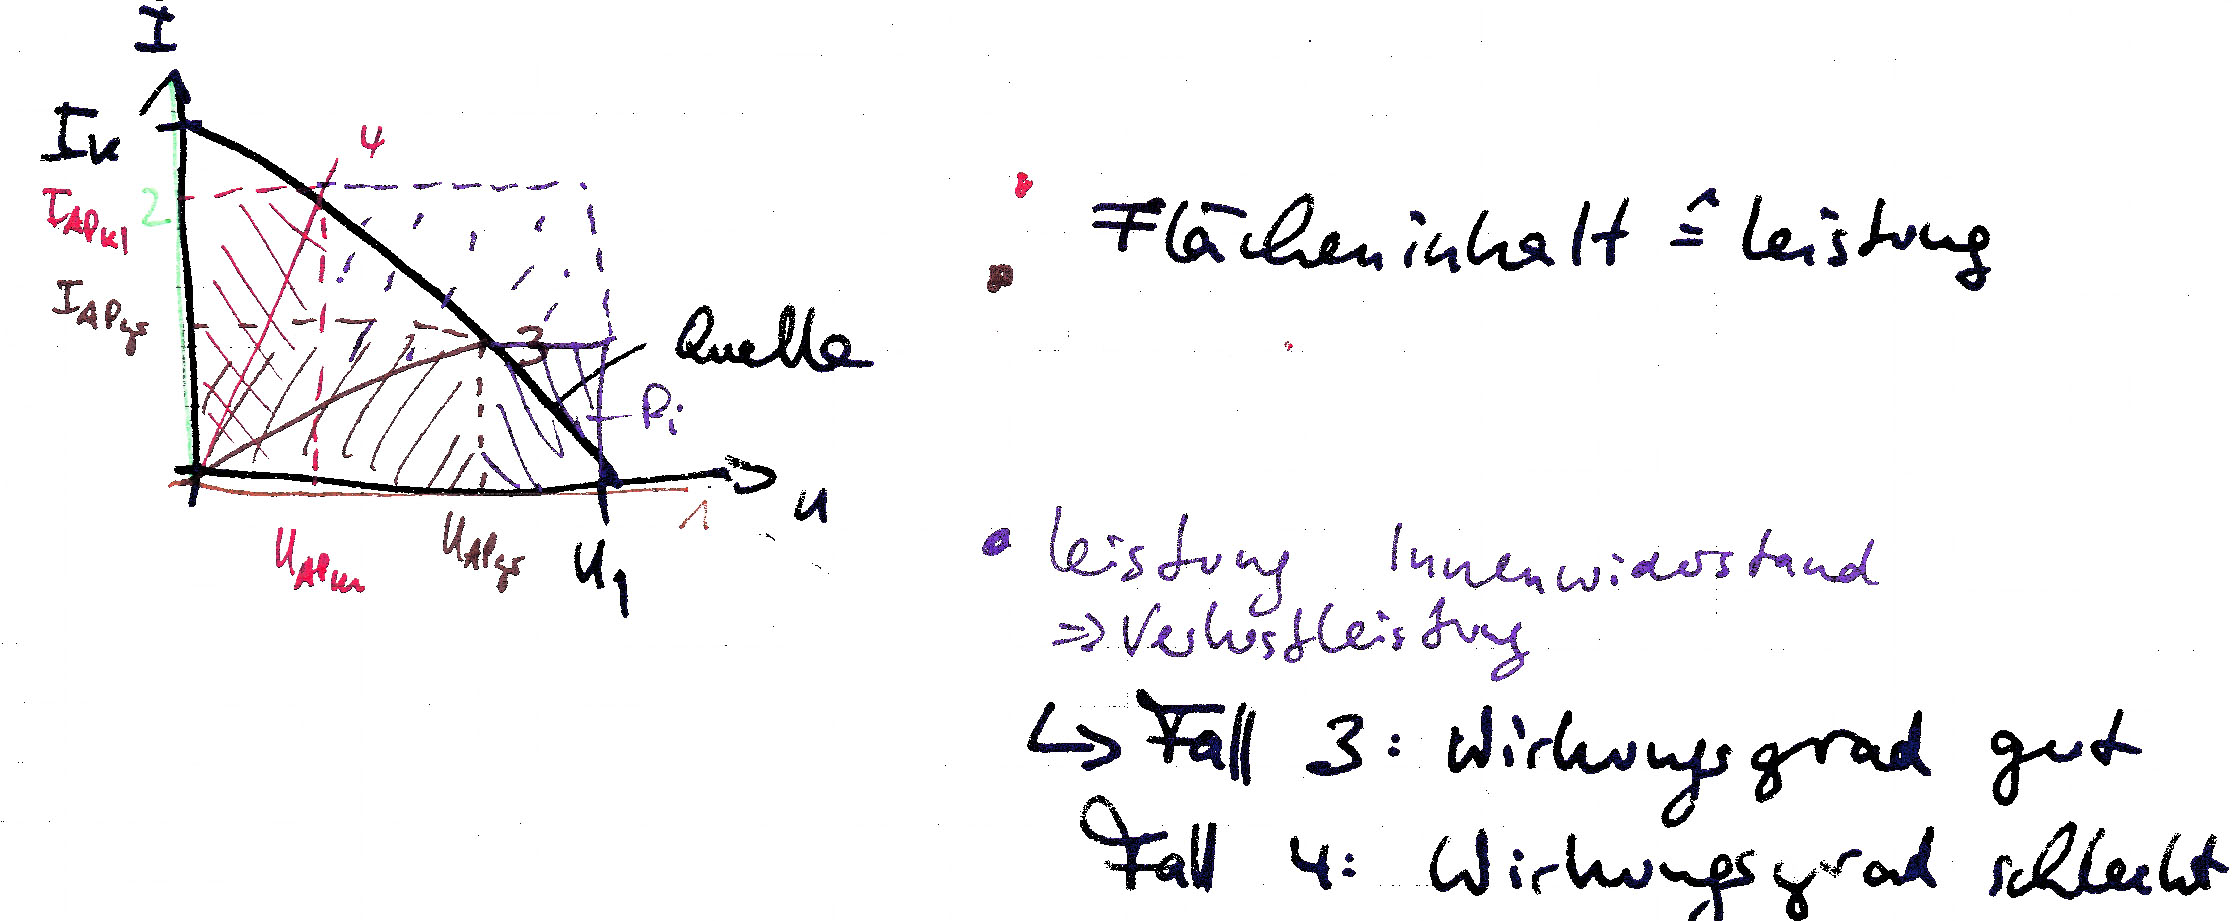 I
I_K
4
I_APkl
2
I_APgr
3
Quelle
P_i
U
1
U_APkl
U_APgr
U_1
Flächeninhalt ≙ Leistung
Leistung Innenwiderstand
⇒ Verlustleistung
↳ Fall 3: Wirkungsgrad gut
Fall 4: Wirkungsgrad schlecht